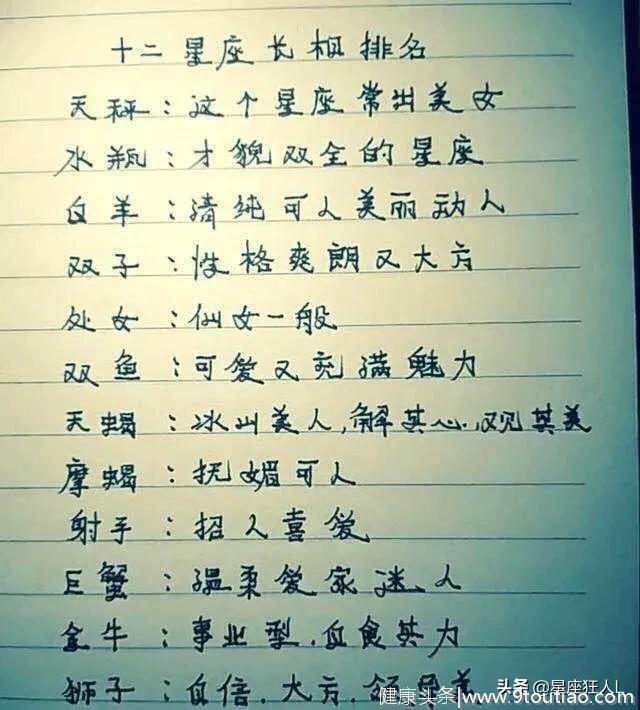 十二星座长相排名
天秤：这个星座常出美女
水瓶：才貌双全的星座
白羊：清纯可人美丽动人
双子：性格爽朗又大方
处女：仙女一般
双鱼：可爱又充满魅力
天蝎：冰山美人，解其心，观其美
摩蝎：抚媚可人
射手：招人喜爱
巨蟹：温柔爱家迷人
金牛：事业型．自食其力
狮子：自信．大方．领
头条@星座狂人L
健康头条|www.9toutiao.com